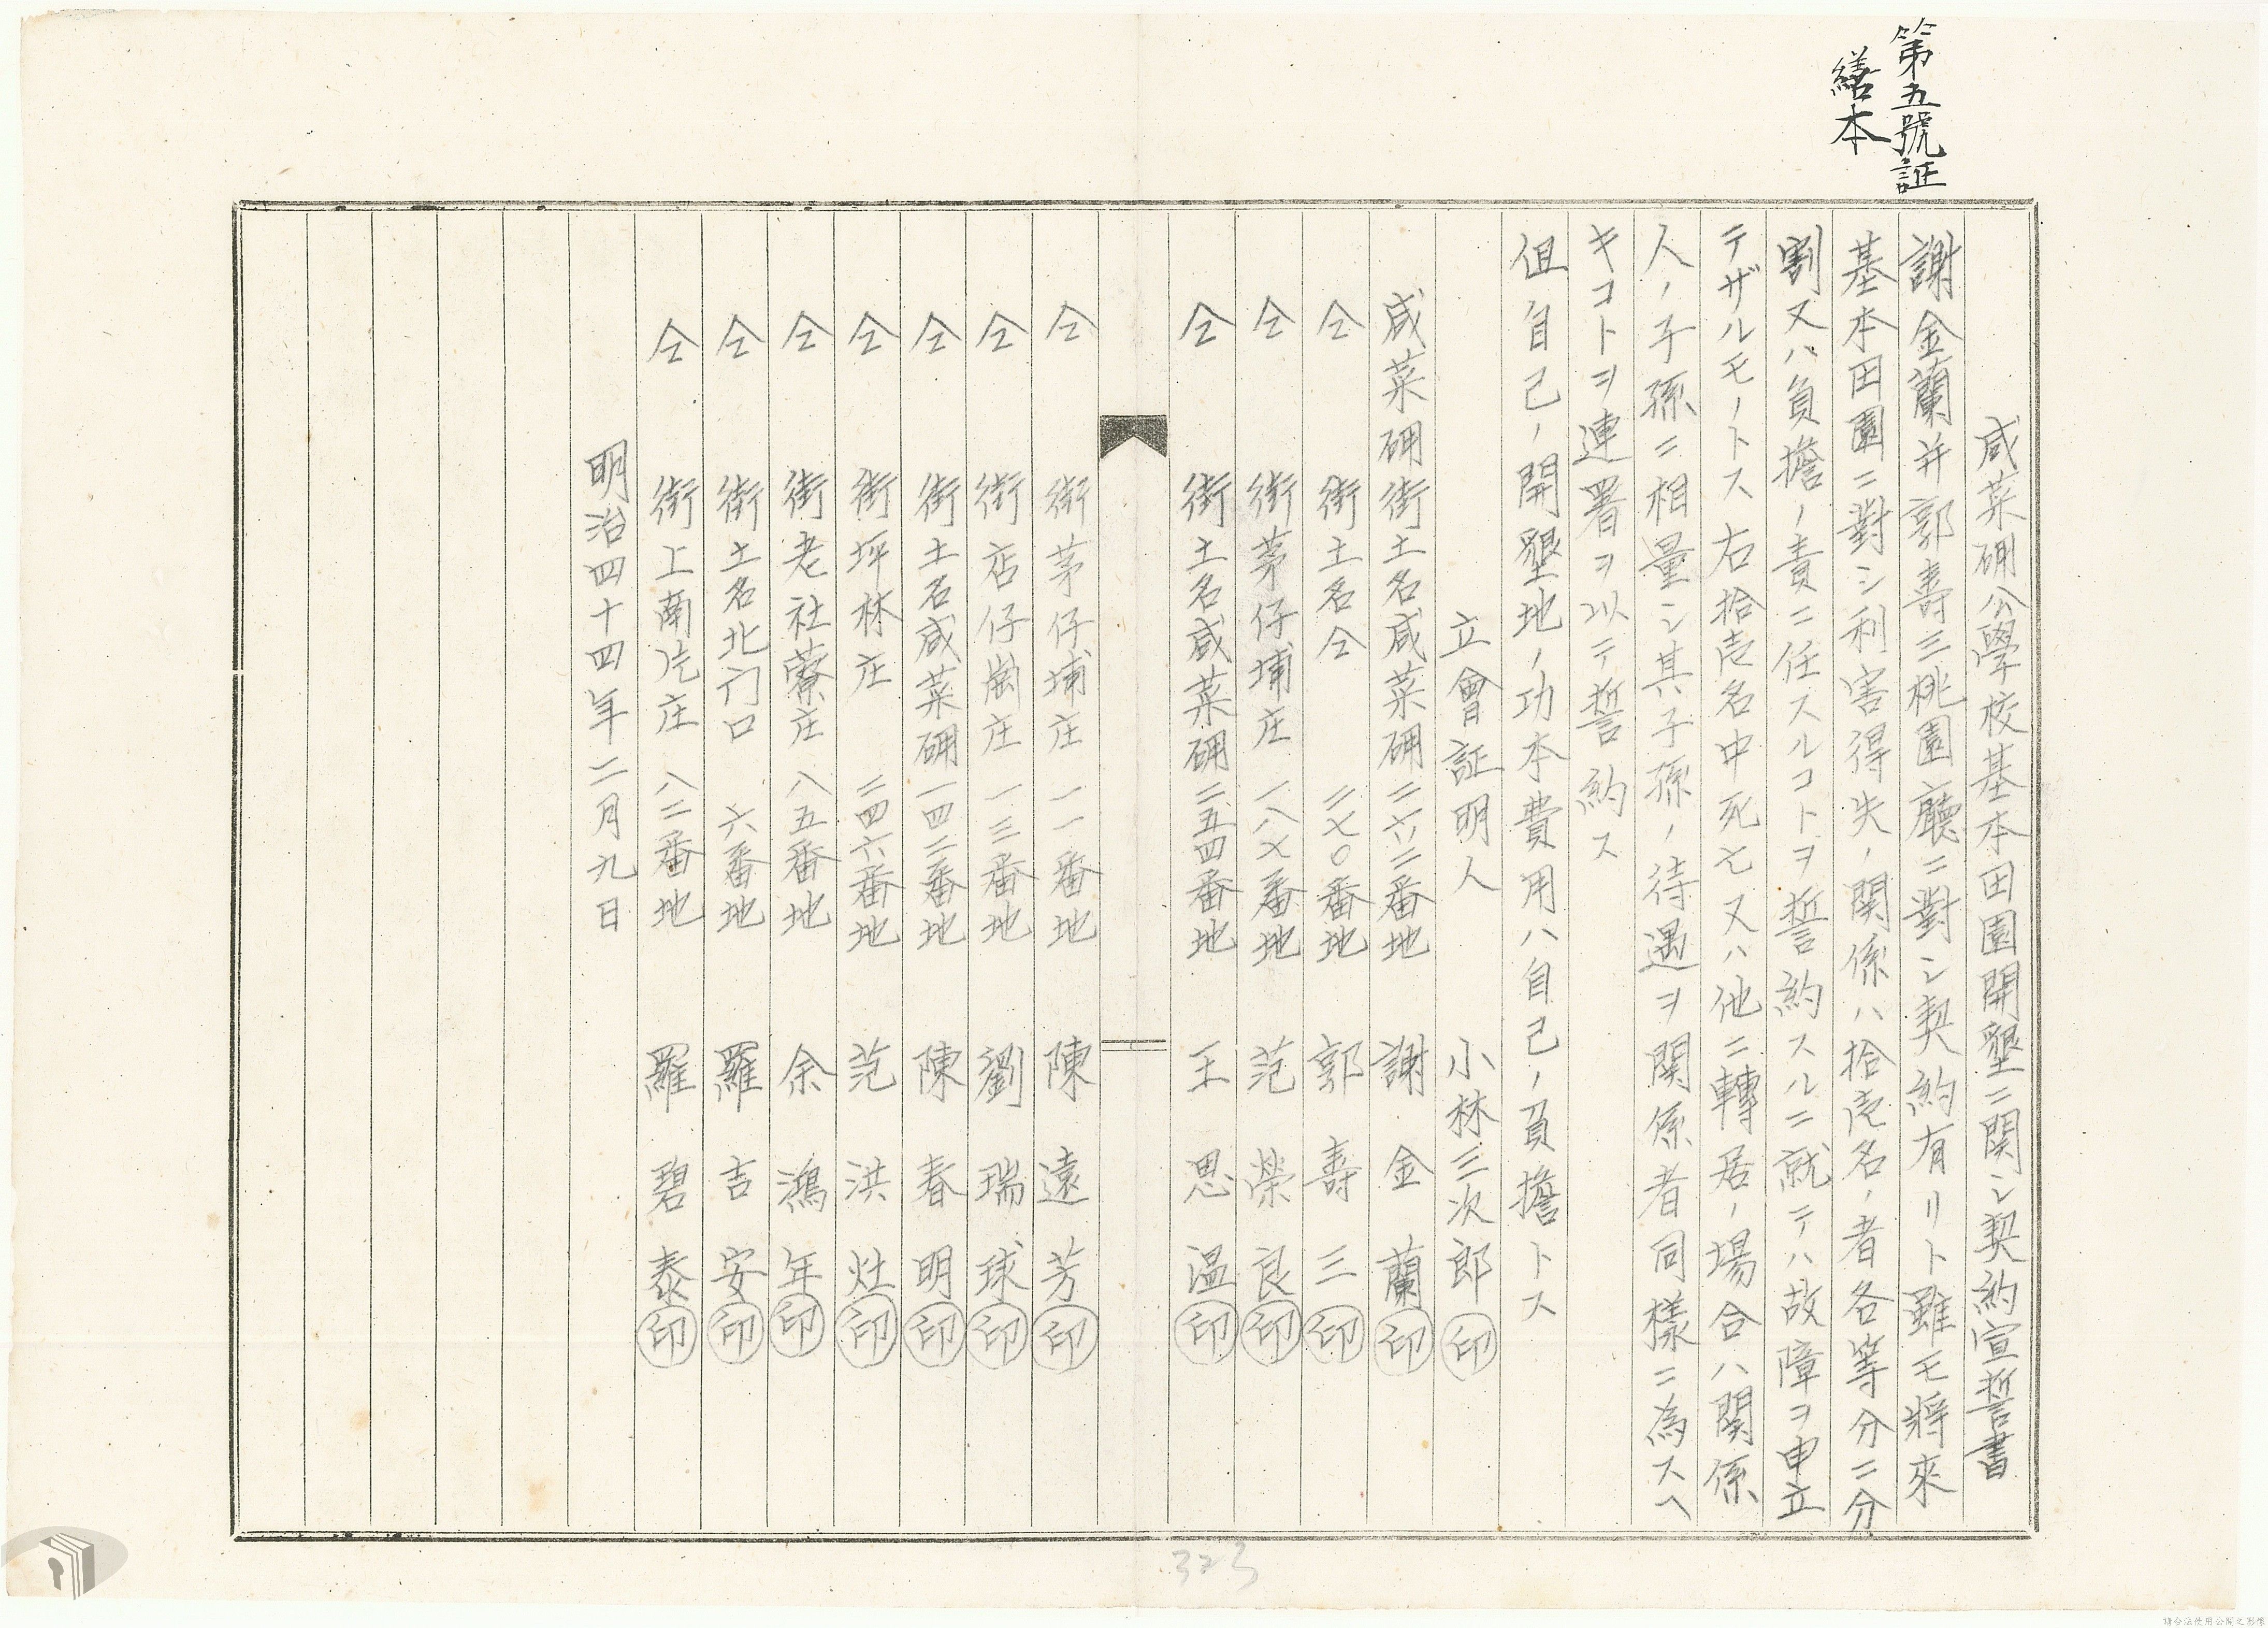 第五號証
繕本
咸菜硼公學校基本田園開墾ニ関シ契約宣誓書
謝金蘭并郭壽三桃園廳ニ對シ契約有リト雖モ將來
基本田園ニ對シ利害得失ノ関係ハ拾壱名ノ者各等分ニ分
割又ハ負擔ノ責ニ任スルコトヲ誓約スルニ就テハ故障ヲ申立
テザルモノトス右拾壱名中死七又ハ他ニ轉居ノ場合ハ関係
人ノ子孫ニ相量シ其子孫ノ待遇ヲ関係者同樣ニ為スヘ
キコトヲ連署ヲ以テ誓約ス
伹自己ノ開墾地ノ功本費用ハ自己ノ負擔トス
立會証明人 小林三次郎 印
咸菜硼街土名咸菜硼二六二番地 謝金蘭 印
仝 街土名仝 二七〇番地 郭壽三 印
仝 街茅仔埔庄 一八七番地 范榮良 印
仝 街土名咸菜硼二五四番地 王思温 印
仝 街茅仔埔庄 一一番地 陳遠芳 印
仝 街店仔崗庄 一三番地 劉瑞球 印
仝 街土名咸菜硼一四二番地 陳春明 印
仝 街坪林庄 二四六番地 范洪灶 印
仝 街老社藔庄 八五番地 余鴻年 印
仝 街土名北门口 六番地 羅吉安 印
仝 街上南片庄 八二番地 羅碧泰 印
明治四十四年二月九日
323
請合法使用公開之影像